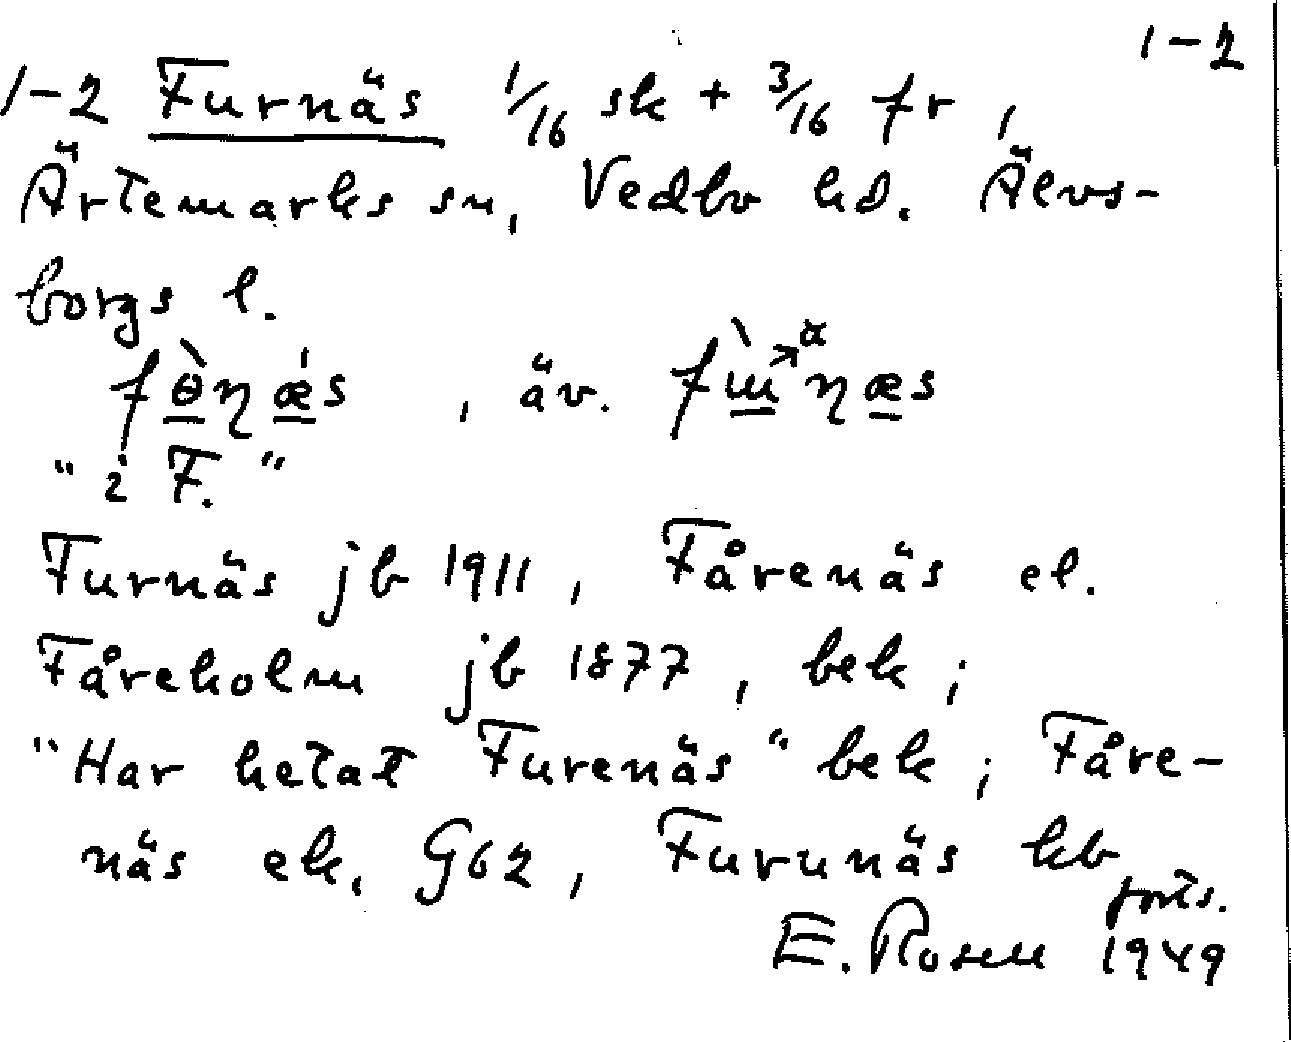 1-2
1-2 Furnäs 1/16 sk + 3/16 fr,
Ärtemarks sn, Vedbo hd. Älvs-
borgs l.
fɵ̀ηǽs , äv. fɯ̀ηæs
"i F."
Furnäs jb 1911, Fårenäs el.
Fåreholm jb 1877, bek;
"Har hetat Furenäs" bek; Fåre-
näs ek. G62, Furunäs kb
forts.
E. Rosell 1949